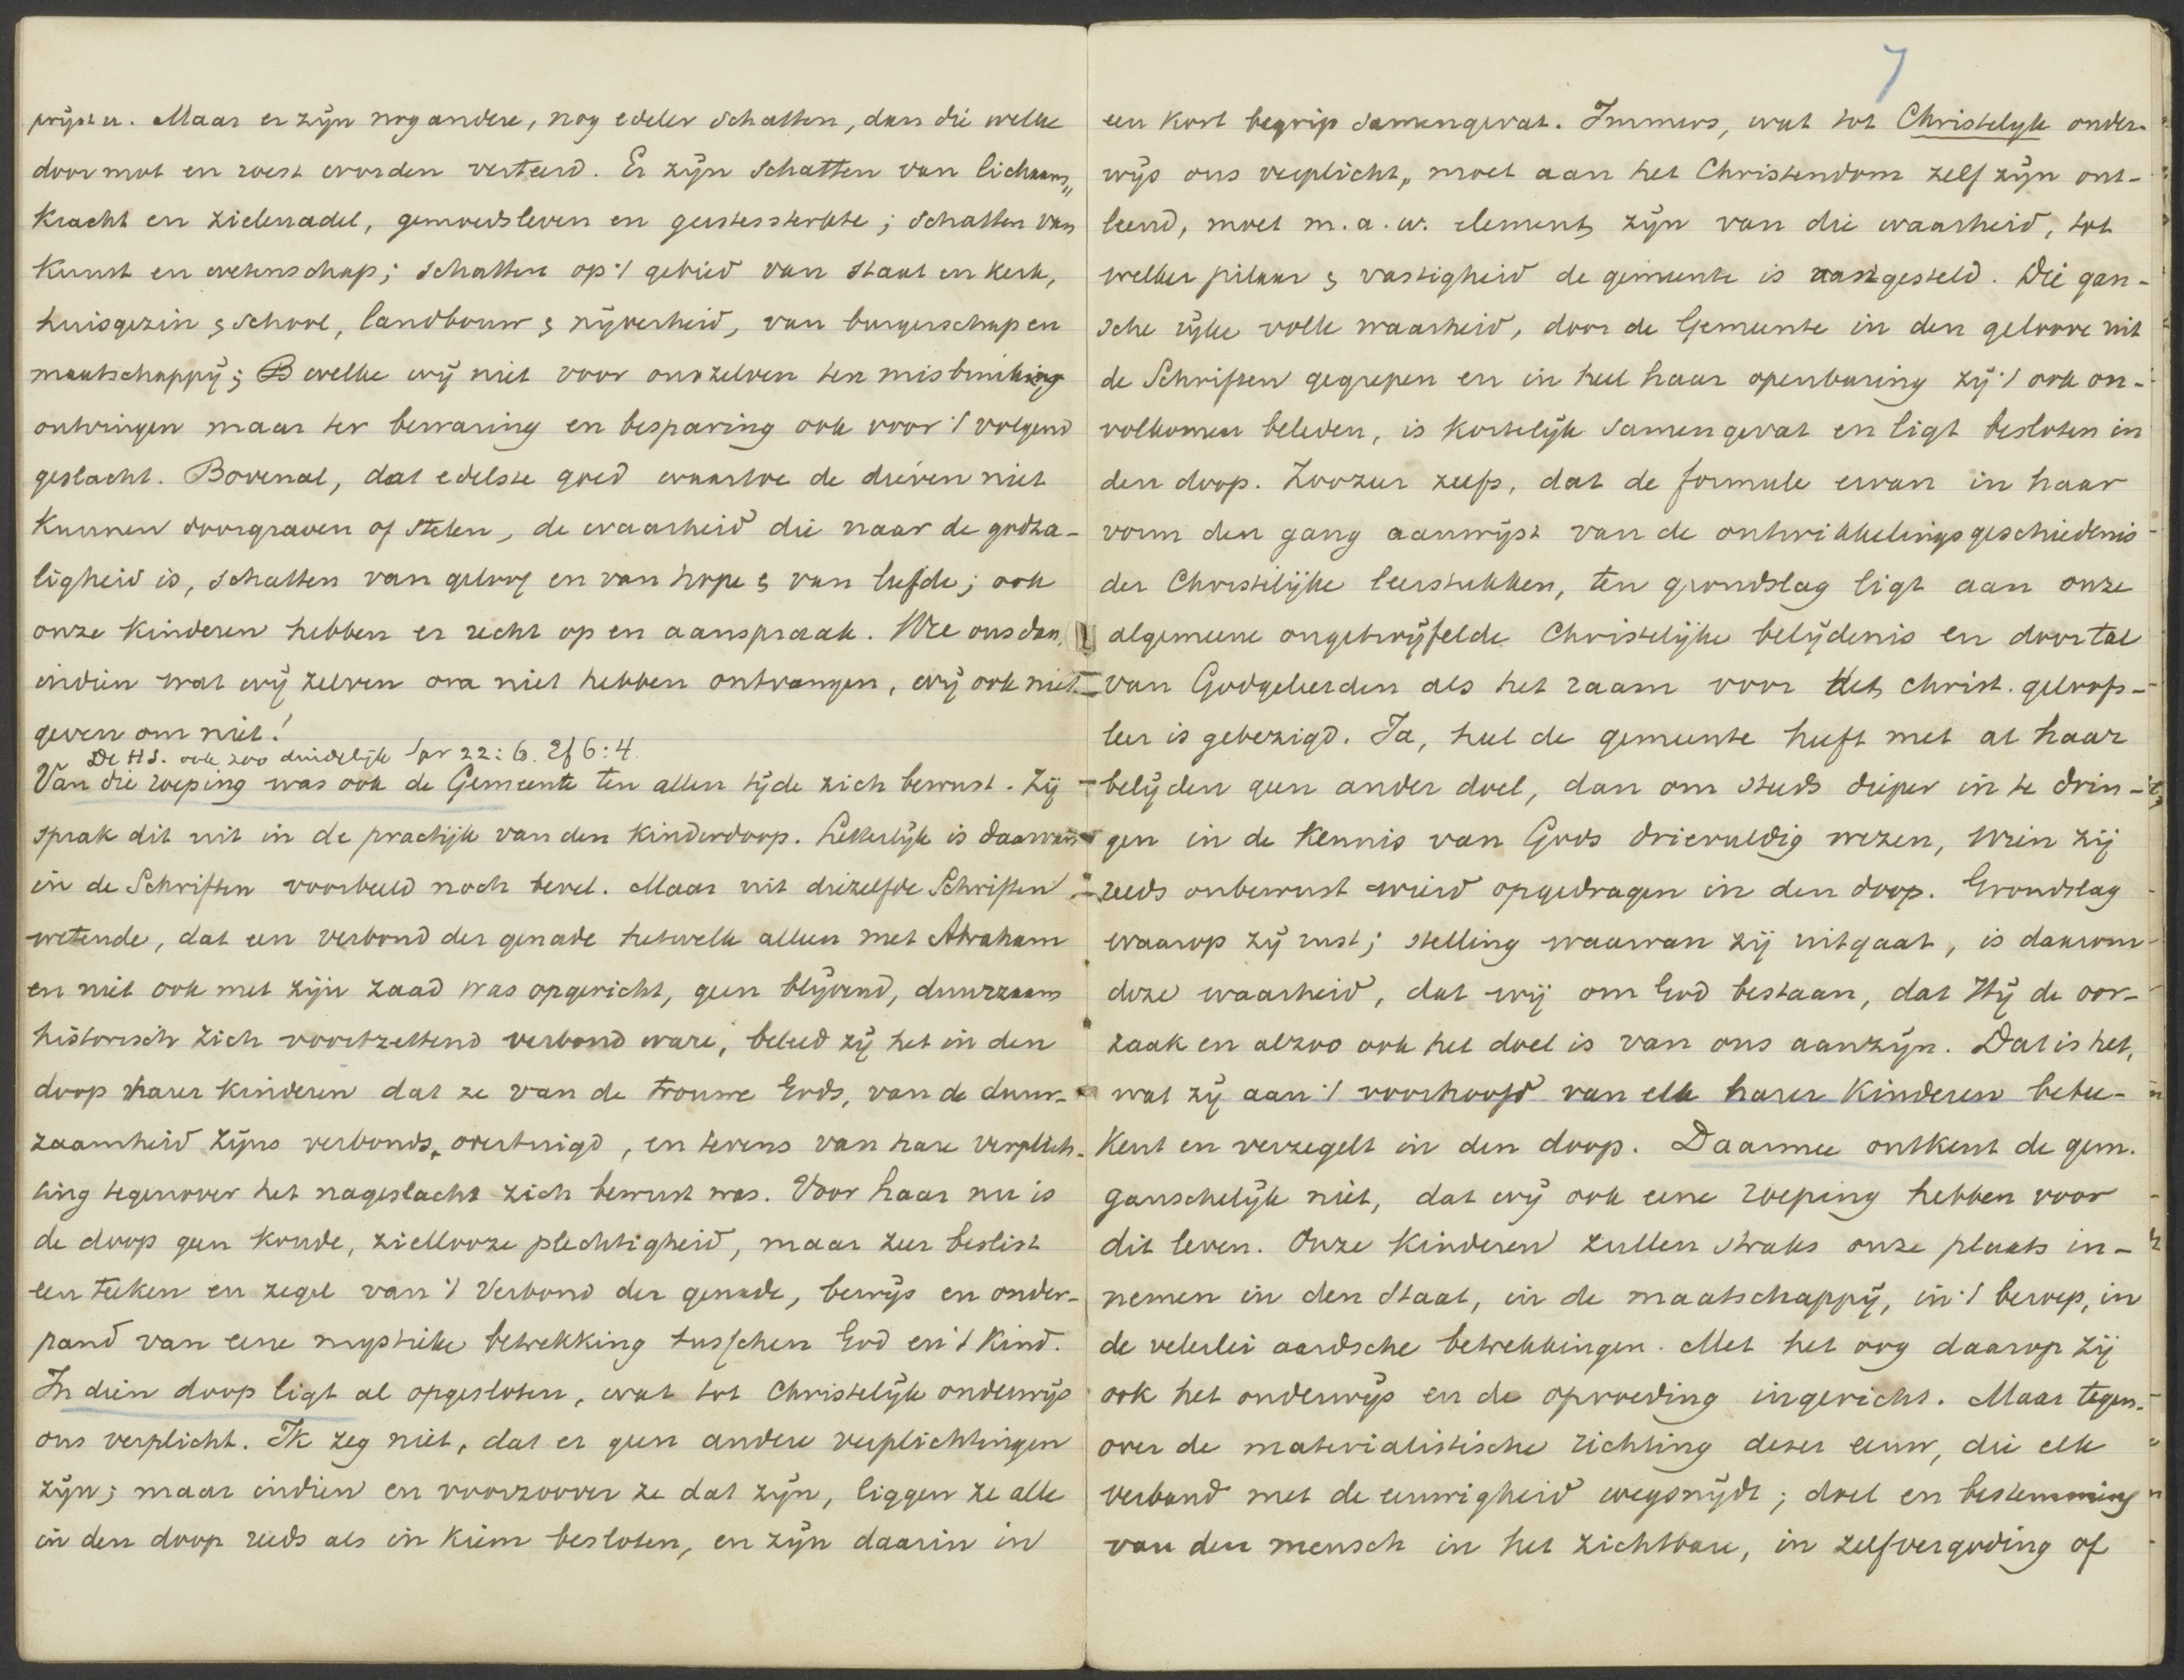 prijzen. Maar er zijn nog andere, nog edeler schatten, dan die welke
door mot en roest worden verteerd. Er zijn schatten van lichaams„
kracht en zielenadel, gemoedsleven en geestessterkte; schatten van
kunst en wetenschap; schatten op 't gebied van staat en kerk,
huisgezin & school, landbouw & nijverheid, van burgerschap en
maatschappij; welke wij niet voor onszelven ter misbruiking
ontvingen maar ter bewaring en besparing ook voor 't volgend
geslacht. Bovenal, dat edelste goed waartoe de dieven niet
kunnen doorgraven of stelen, de waarheid die naar de godza-
ligheid is, schatten van geloof en van hope & van liefde; ook
onze kinderen hebben er recht op en aanspraak. Wee ons dan,
indien wat wij zelven om niet hebben ontvangen, wij ook niet
geven om niet!
De H.S. ook zoo duidelijk Spr 22:6. Ef 6:4.
Van die roeping was ook de Gemeente ten allen tijde zich bewust. Zij
sprak dit uit in de practijk van den kinderdoop. Letterlijk is daarvan
in de Schriften voorbeeld noch bevel. Maar uit diezelfde Schriften
wetende, dat een verbond der genade hetwelk alleen met Abraham
en niet ook met zijn zaad was opgericht, geen blijvend, duurzaam
historisch zich voortzettend verbond ware, beleed zij het in den
doop harer kinderen dat ze van de trouwe Gods, van de duur-
zaamheid Zijns verbonds, overtuigd, en tevens van hare verplich-
ting tegenover het nageslacht zich bewust was. Voor haar nu is
de doop geen koude, ziellooze plechtigheid, maar zeer beslist
een teeken en zegel van 't Verbond der genade, bewijs en onder-
pand van eene mystieke betrekking tusschen God en 't kind.
In dien doop ligt al opgesloten, wat tot Christelijk onderwijs
ons verplicht. Ik zeg niet, dat er geen andere verplichtingen
zijn; maar indien en voorzoover ze dat zijn, liggen ze alle
in den doop reeds als in kiem besloten, en zijn daarin in
7
een kort begrip samengevat. Immers, wat tot Christelyk onder-
wijs ons verplicht, moet aan het Christendom zelf zijn ont-
leend, moet m.a.w. element zijn van die waarheid, tot
welker pilaar & vastigheid de gemeente is aangesteld. Die gan-
sche rijke volle waarheid, door de Gemeente in den geloove uit
de Schriften gegrepen en in heel haar openbaring zij 't ook on-
volkomen beleden, is kortelijk samengevat en ligt besloten in
den doop. Zoozeer zelfs, dat de formule ervan in haar
vorm den gang aanwijst van de ontwikkelingsgeschiedenis
der Christelijke leerstukken, ten grondslag ligt aan onze
algemeene ongetwijfelde Christelijke belijdenis en door tal
van Godgeleerden als het raam voor het christ. geloofs-
leer is gebezigd. Ja, heel de gemeente heeft met al haar
belijden geen ander doel, dan om steeds dieper in te drin-
gen in de kennis van Gods drievuldig wezen, Wien zij
reeds onbewust wierd opgedragen in den doop. Grondslag
waarop zij rust; stelling waarvan zij uitgaat, is daarom
deze waarheid, dat wij om God bestaan, dat Hij de oor-
zaak en alzoo ook het doel is van ons aanzijn. Dat is het,
wat zij aan 't voorhoofd van elk harer kinderen betee-
kent en verzegelt in den doop. Daarmee ontkent de gem.
ganschelijk niet, dat wij ook eene roeping hebben voor
dit leven. Onze kinderen zullen straks onze plaats in-
nemen in den Staat, in de maatschappij, in 't beroep, in
de velerlei aardsche betrekkingen. Met het oog daarop zij
ook het onderwijs en de opvoeding ingericht. Maar tegen-
over de materialistische richting dezer eeuw, die elk
verband met de eeuwigheid wegsnijdt; doel en bestemming
van den mensch in het zichtbare, in zelfvergoding of